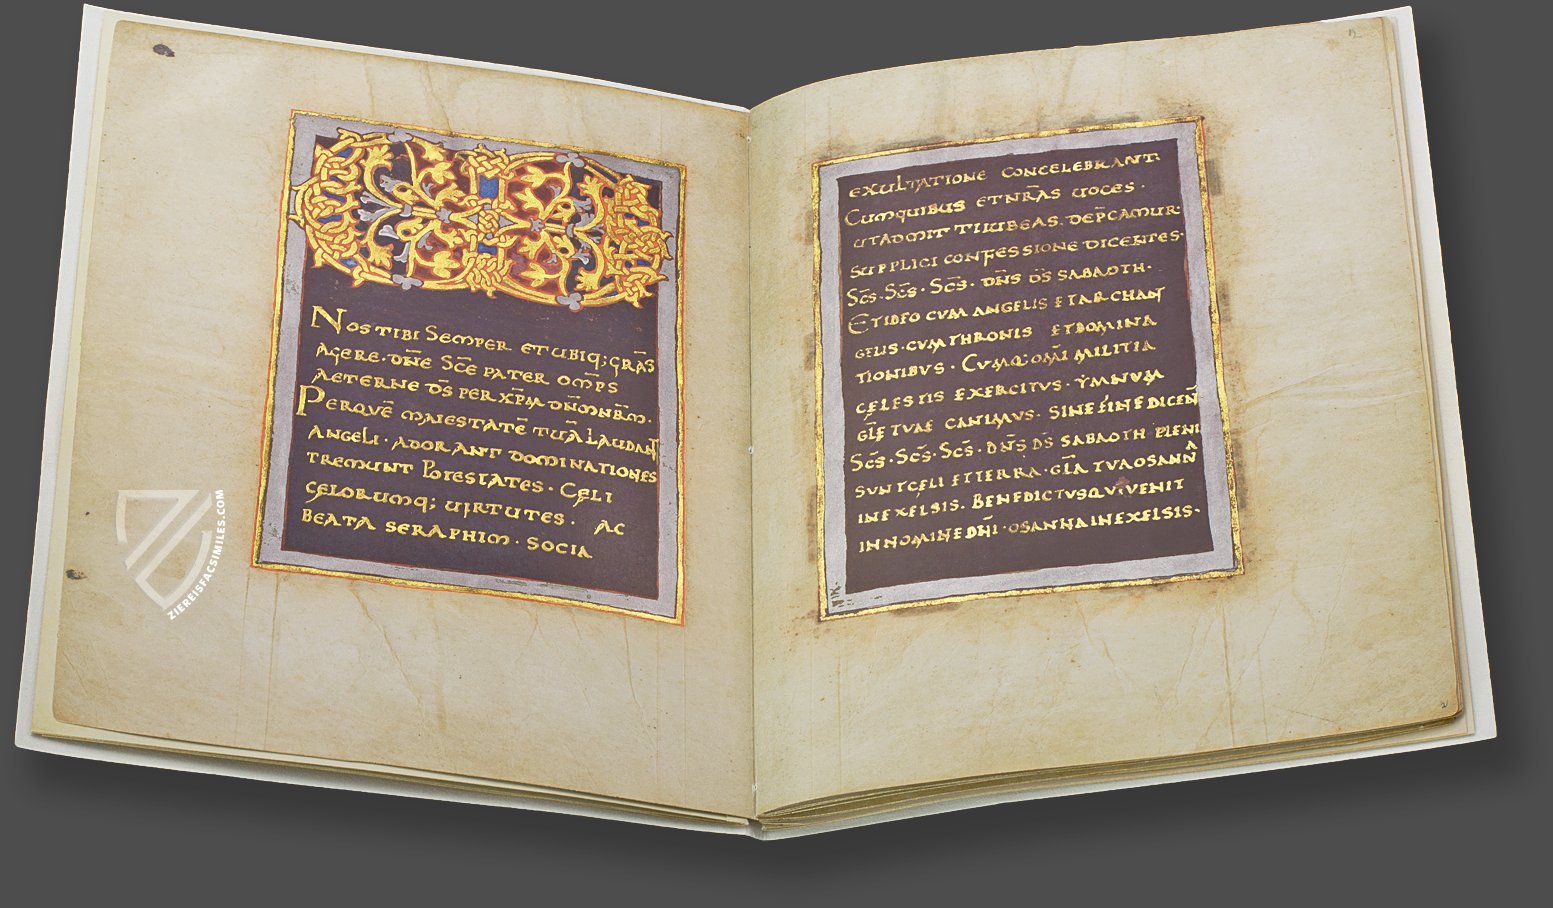 NOS TIBI SEMPER ET UBIQ; GRA̅S
AGERE · DN̅E SC̅E PATER OM̅PS
AETERNE DS̅ PER XP̅M DN̅M NR̅M ·
PER QUĒ MAIESTATĒ TUĀ LAUDANT
ANGELI · ADORANT DOMINATIONES
TREMUNT POTESTATES · CELI
CELORUMQ; UIRTUTES · AC
BEATA SERAPHIM · SOCIA
EXULTATIONE CONCELEBRANT;
CUM QUIBUS ET NR̅AS UOCES ·
UT ADMITTI IUBEAS · DEP̅CAMUR·
SUPPLICI CONFESSIONE DICENTES·
SC̅S · SC̅S · SC̅S · DN̅S DS̅ SABAOTH ·
ET IDEO CVM ANGELIS ET ARCHAN
GELIS · CVM THRONIS ET DOMINA
TIONIBVS · CVMQ: OM̅I MILITIA
CELESTIS EXERCITVS · YMNVM
GL̅E TVAE CANIMVS · SINE FINE DICEN̅
SC̅S · SC̅S · SC̅S · DN̅S DS̅ SABAOTH PLENI
SVNT CELI ET TERRA · GL̅A TVA OSANNA
IN EXELSIS · BENEDICTVS QVI VENIT
IN NOMINE DN̅I · OSANNA IN EXELSIS ·
ZIEREISFACSIMILES.COM